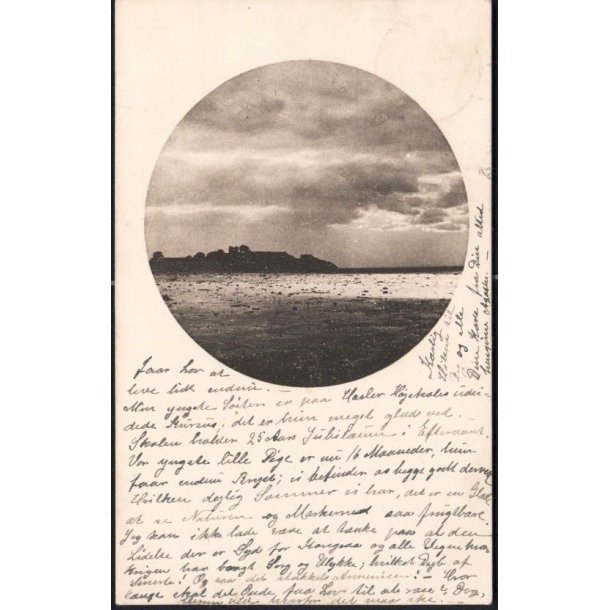 faar Lov at
leve lidt endnu. —
Min yngste Søster er paa Haslev Højskoles udvi-
dede Kursus, det er hun meget glad ved. —
Skolen holder 25 Aars Jubilæum i Efteraaret.
Vor yngste lille Pige er nu 16 Maaneder, hun
faar endnu Bryst; vi befinder os begge godt derved
Hvilken dejlig Sommer vi har, det er en Glæde
at se Naturen og Markerne saa frugtbare
Jeg kan ikke lade være at tænke paa al den
Lidelse der er Syd for Kongeaa og alle Vegne hvor
Krigen har bragt Sorg og Ulykke; hvilket Dyb af
Smerte! Og saa det stakkels Armenien! — Hvor
længe skal det Onde faa Lov til at rase? Dog,
Kærlig
Hilsen til
Dig og alle
Dine Kære fra Din altid
hengivne